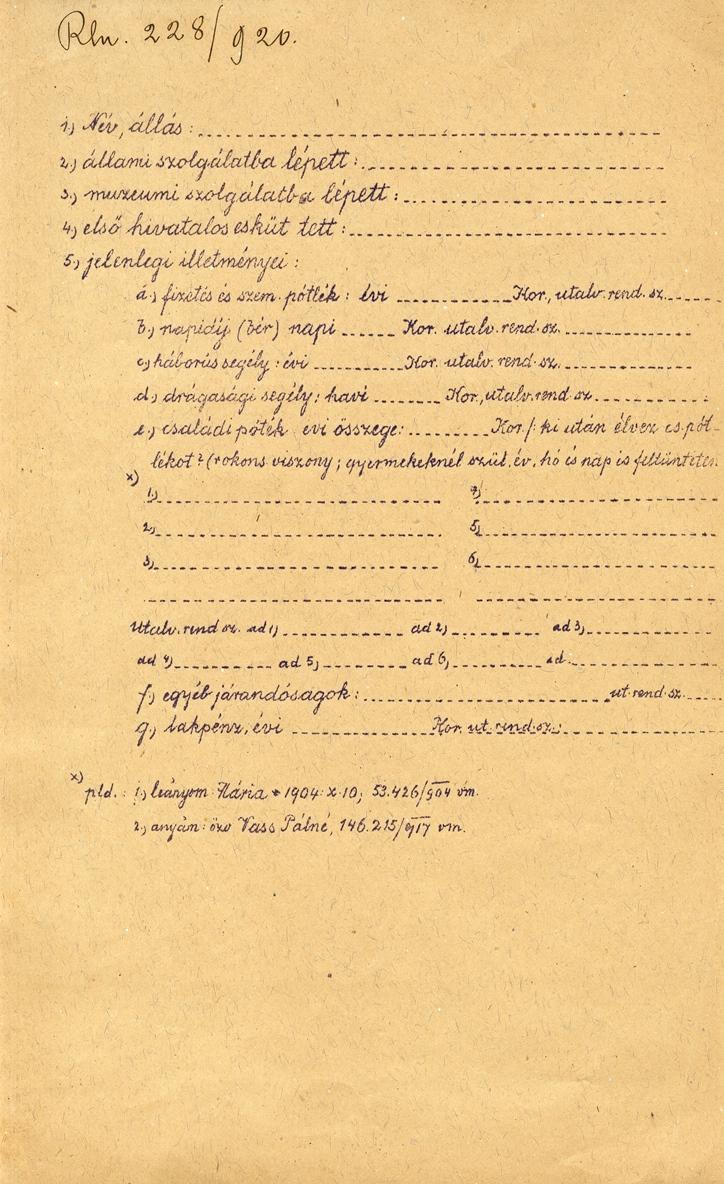 Rln. 228/920.
1.) Név, állás:
2.) állami szolgálatba lépett:
3.) muzeumi szolgálatba lépett:
4.) első hivatalos esküt tett:
5.) jelenlegi illetményei:
a.) fizetés és szem. pótlék: évi Kor., utalv. rend. sz.
b.) napidíj (bér) napi Kor. utalv. rend. sz.
c.) háborús segély: évi Kor. utalv. rend. sz.
d.) drágasági segély: havi Kor., utalv. rend sz
e.) családi póték évi összege: Kor/: ki után élvez cs. pót-
lékot? (rokons. viszony; gyermekeknél szül. év, hó és nap is feltünteten
x) 1.) 4.)
2.) 5.)
3.) 6.)
Utalv. rend sz. ad 1) ad 2.) ad 3.)
ad 4.) ad 5.) ad 6.) ad.
f.) egyéb járandóságok: ut. rend. sz.
g.) lakpénz, évi Kor. ut. rend. sz.:
x) pld.: 1.) leányom Mária * 1904. X. 10; 53.426/904 vm.
2.) anyám: özv Vass Pálné, 146.215/917 vm.